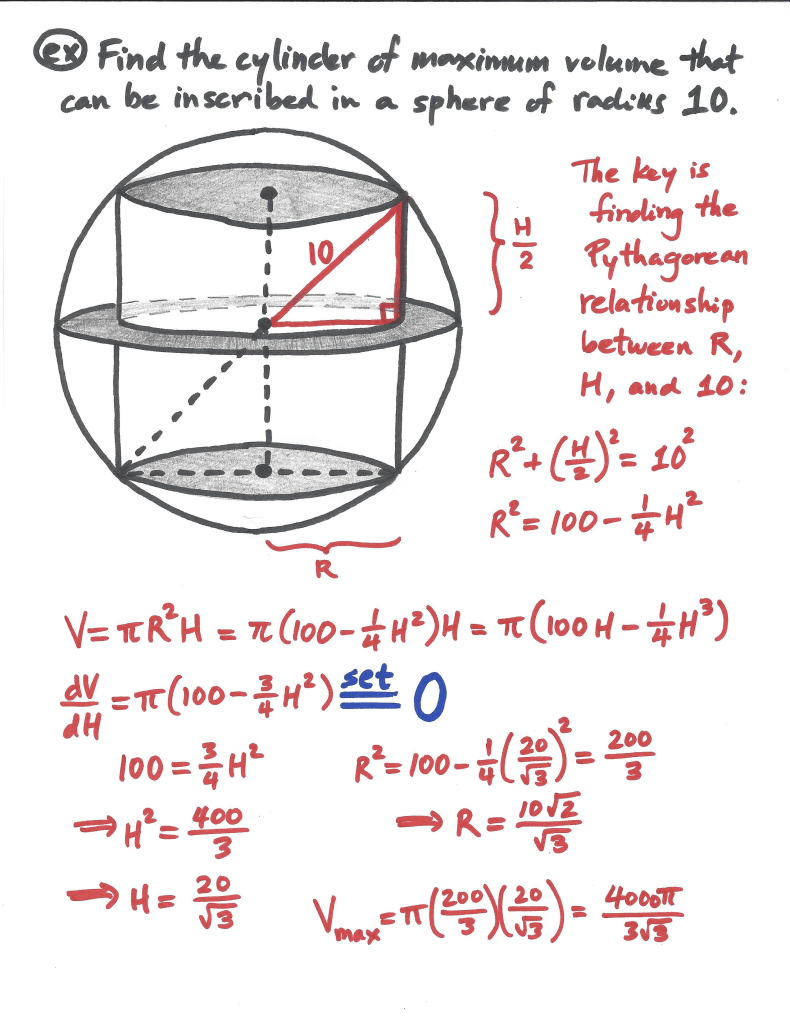 ex Find the cylinder of maximum volume that
can be inscribed in a sphere of radius 10.
The key is
finding the
Pythagorean
relationship
between R,
H, and 10:
10
H/2
R² + (H/2)² = 10²
R² = 100 - 1/4 H²
R
V = πR²H = π(100 - 1/4 H²)H = π(100H - 1/4 H³)
dV/dH = π(100 - 3/4 H²) set = 0
100 = 3/4 H²
⇒ H² = 400/3
⇒ H = 20/√3
R² = 100 - 1/4 (20/√3)² = 200/3
⇒ R = 10√2/√3
Vmax = π(200/3)(20/√3) = 4000π/3√3